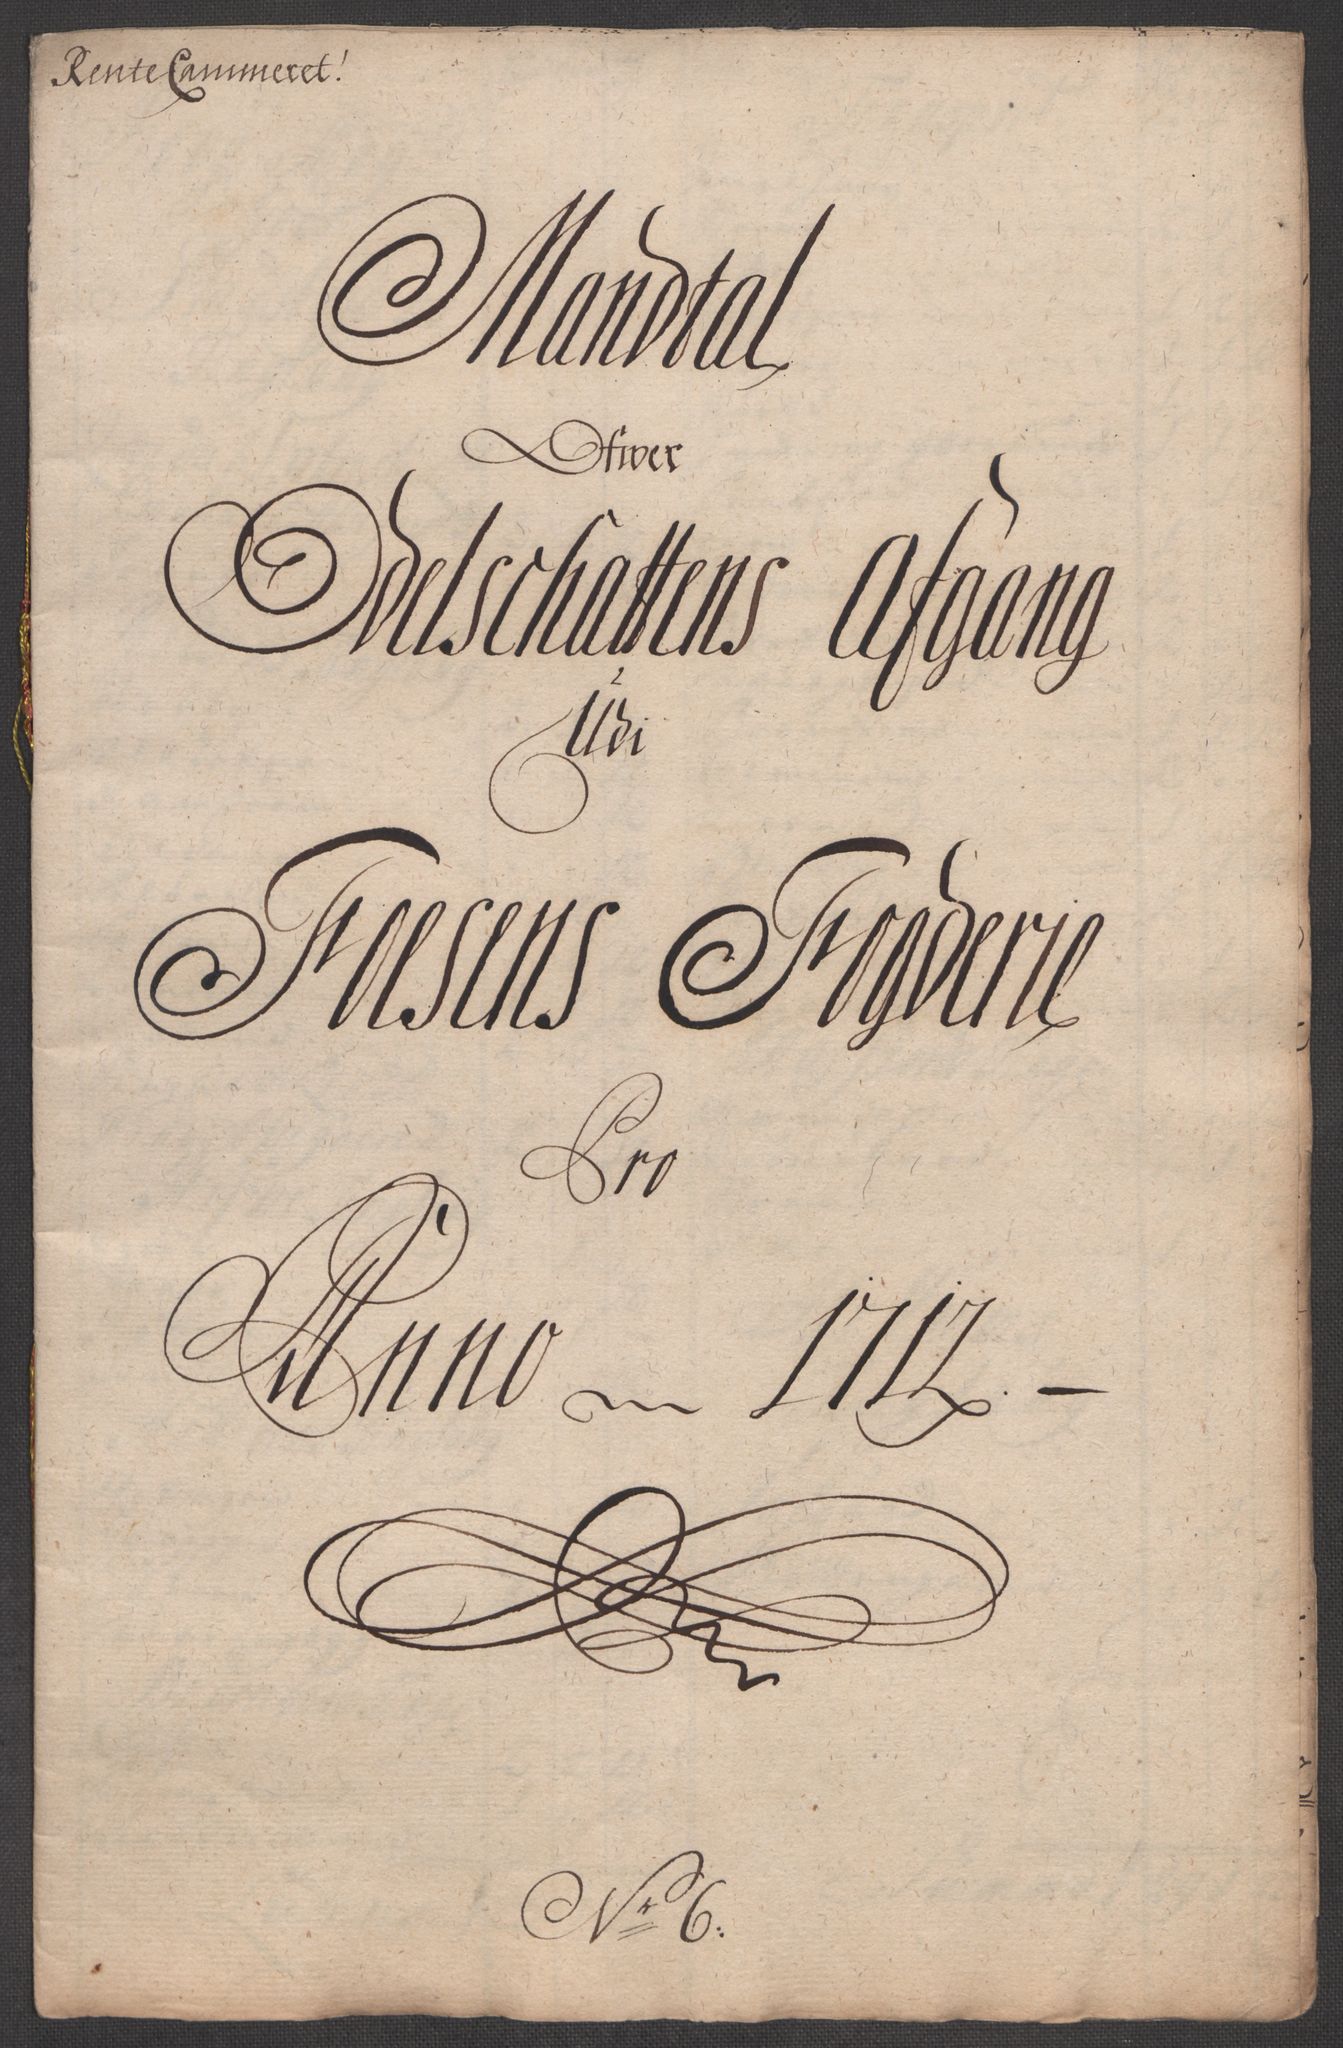 RenteCammeret!
Mandtal
Ofwer
Odelschattens Afgang
Udi
Foesens Fogderie
Pro
Anno 1712. -
No 6.